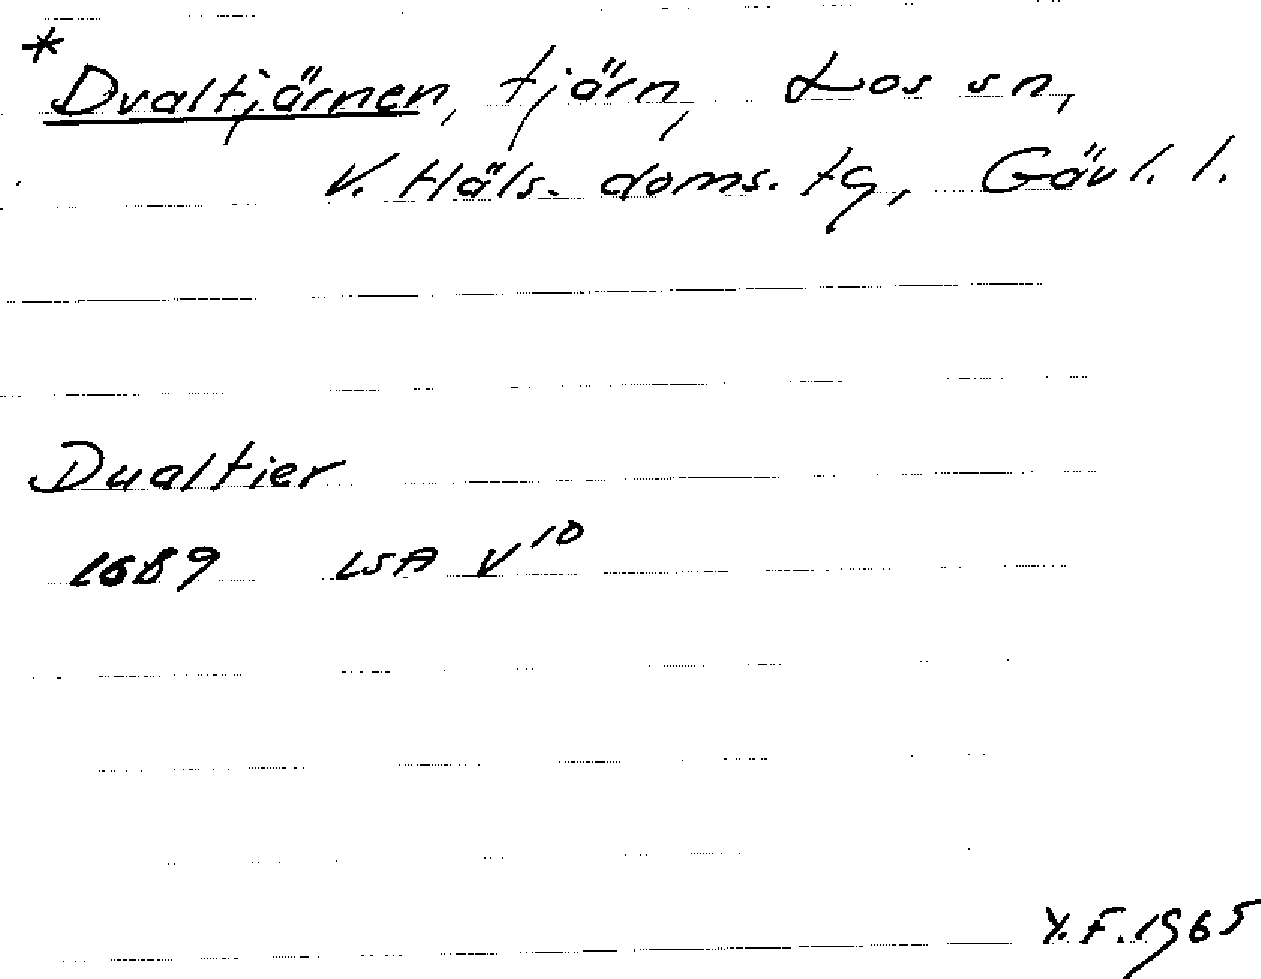 * Dvaltjärnen, tjärn, Los sn,
V. Häls. doms. tg, Gävl. l.
Dualtier
1689 LSA V10
Y.F. 1965